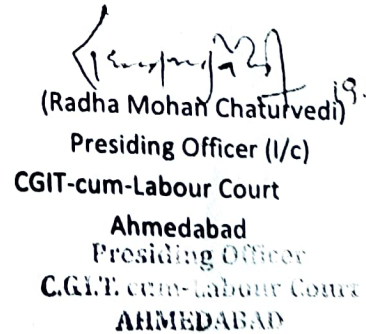 19.
(Radha Mohan Chaturvedi)
Presiding Officer (I/c)
CGIT-cum-Labour Court
Ahmedabad
Presiding Officer
C.G.I.T. cum-Labour Court
AHMEDABAD